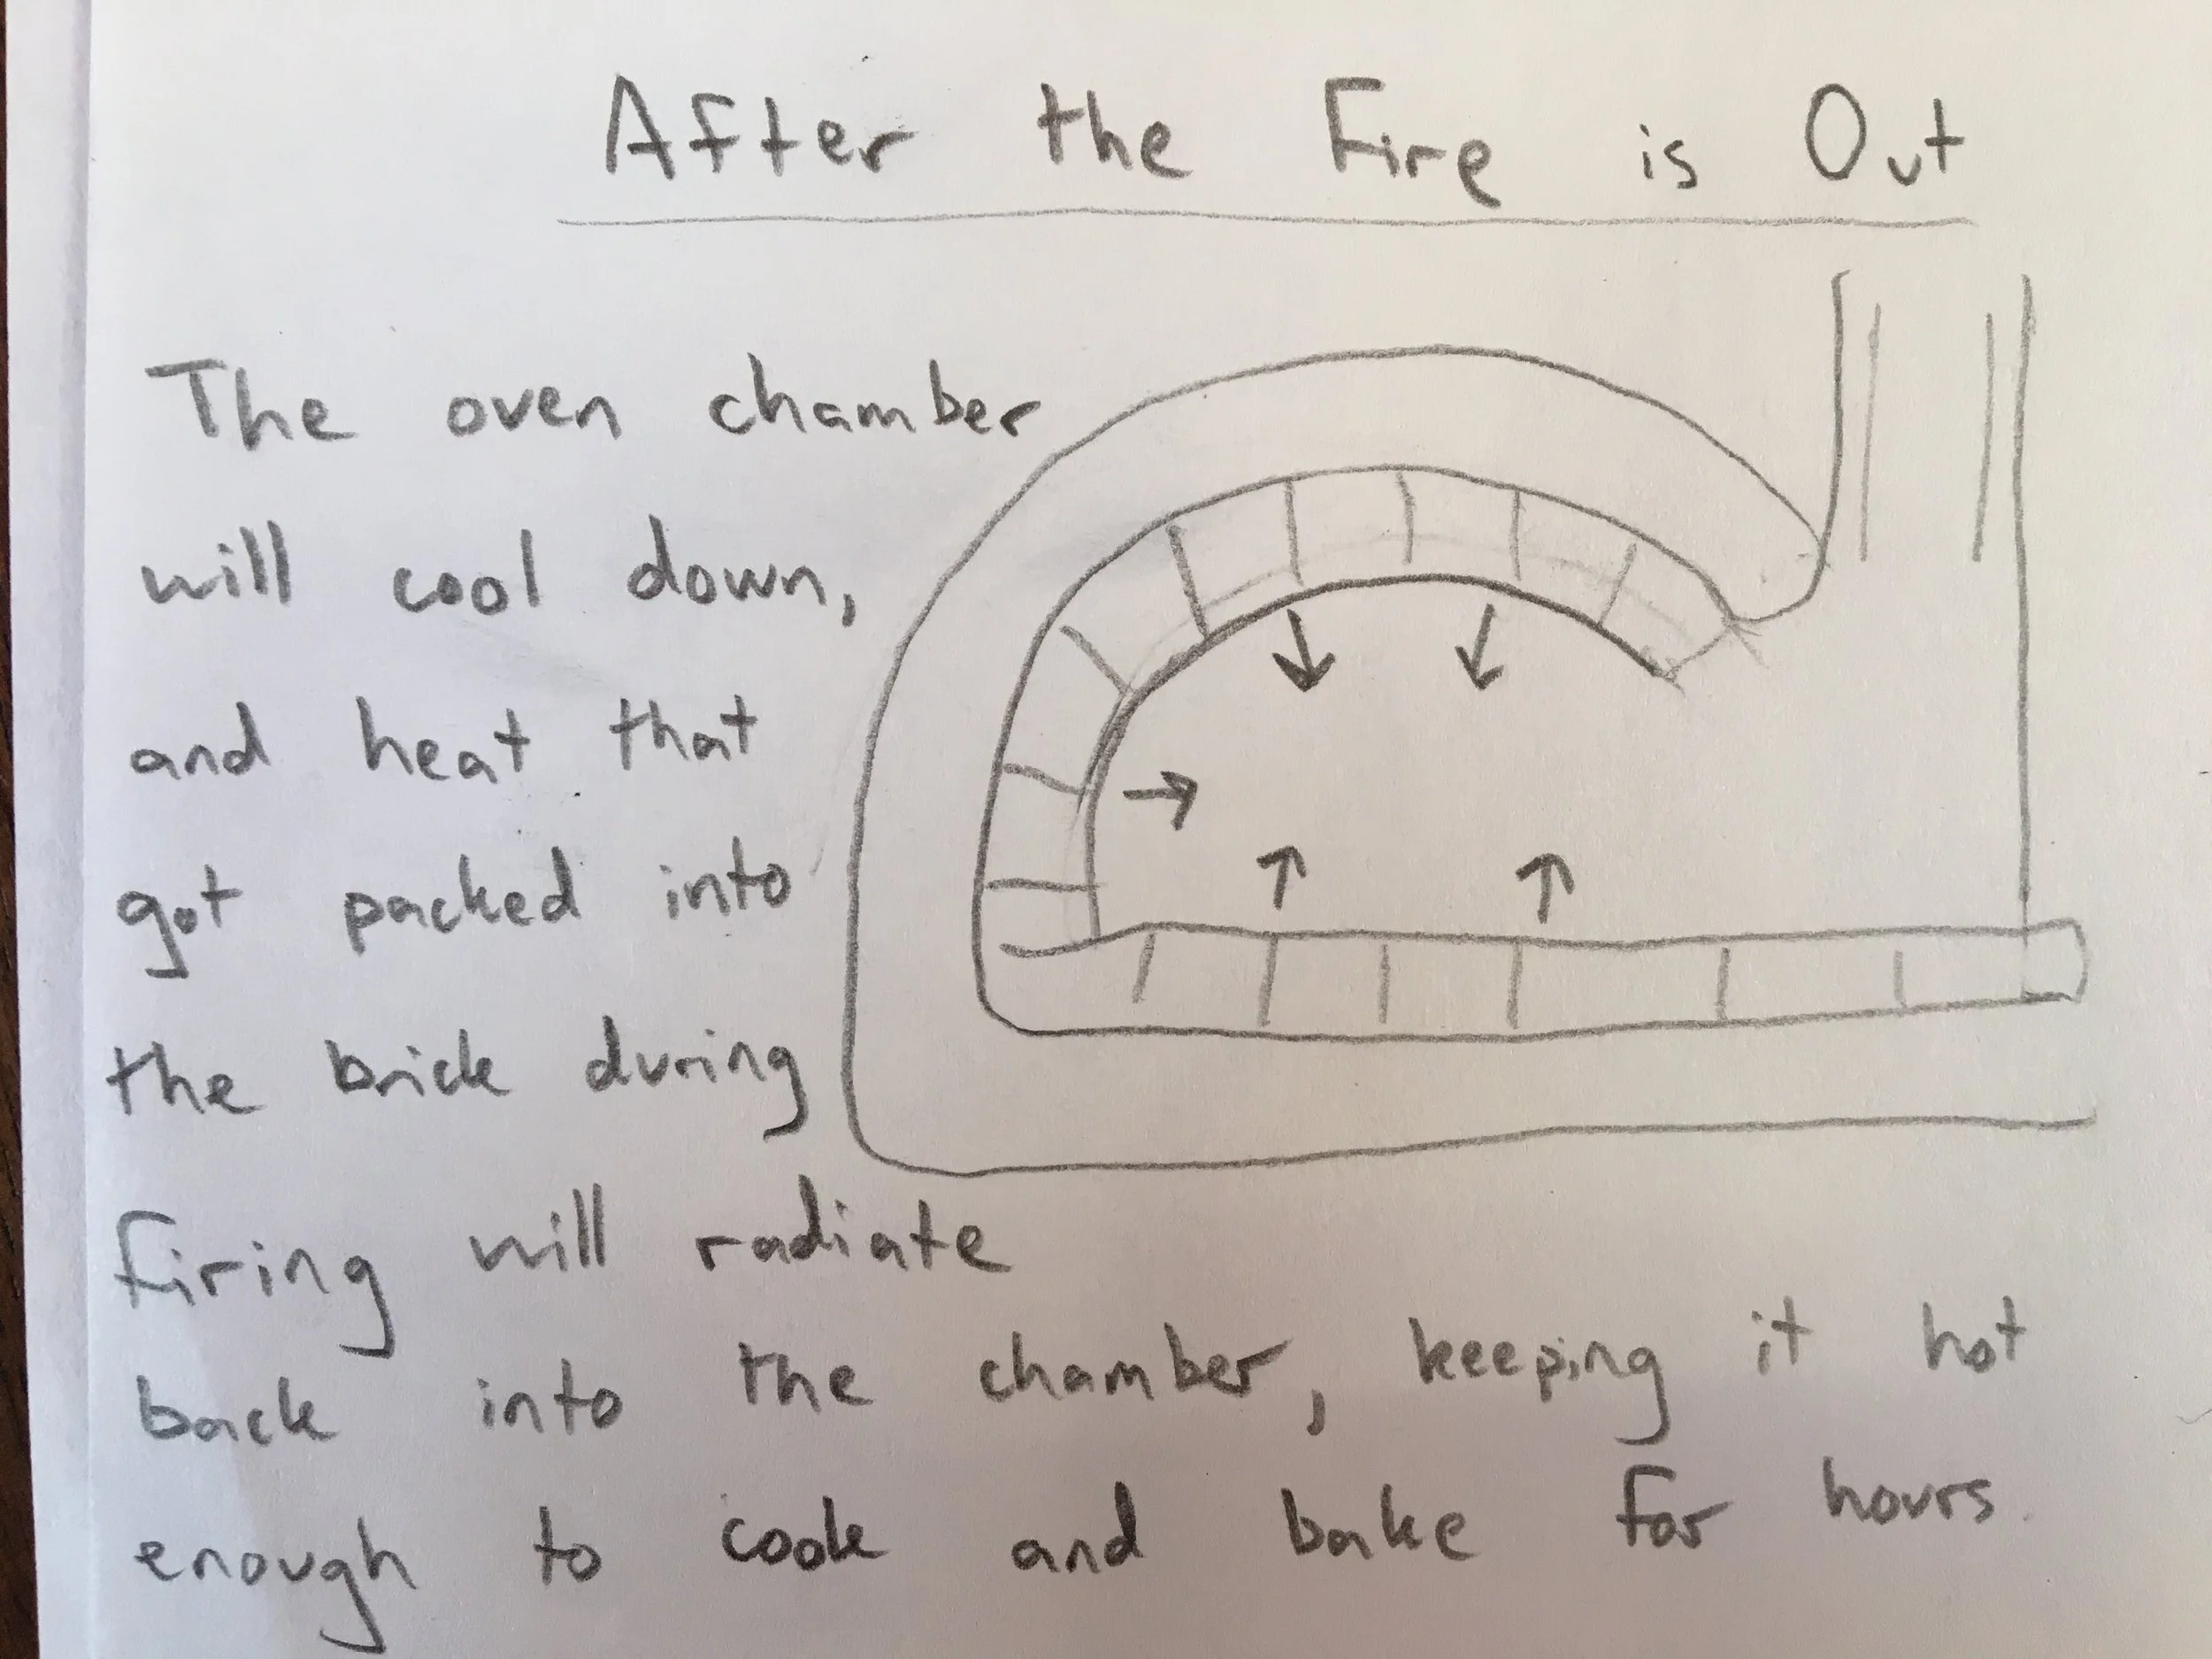 After the Fire is Out
The oven chamber
will cool down,
and heat that
got packed into
the brick during
firing will radiate
back into the chamber, keeping it hot
enough to cook and bake for hours.